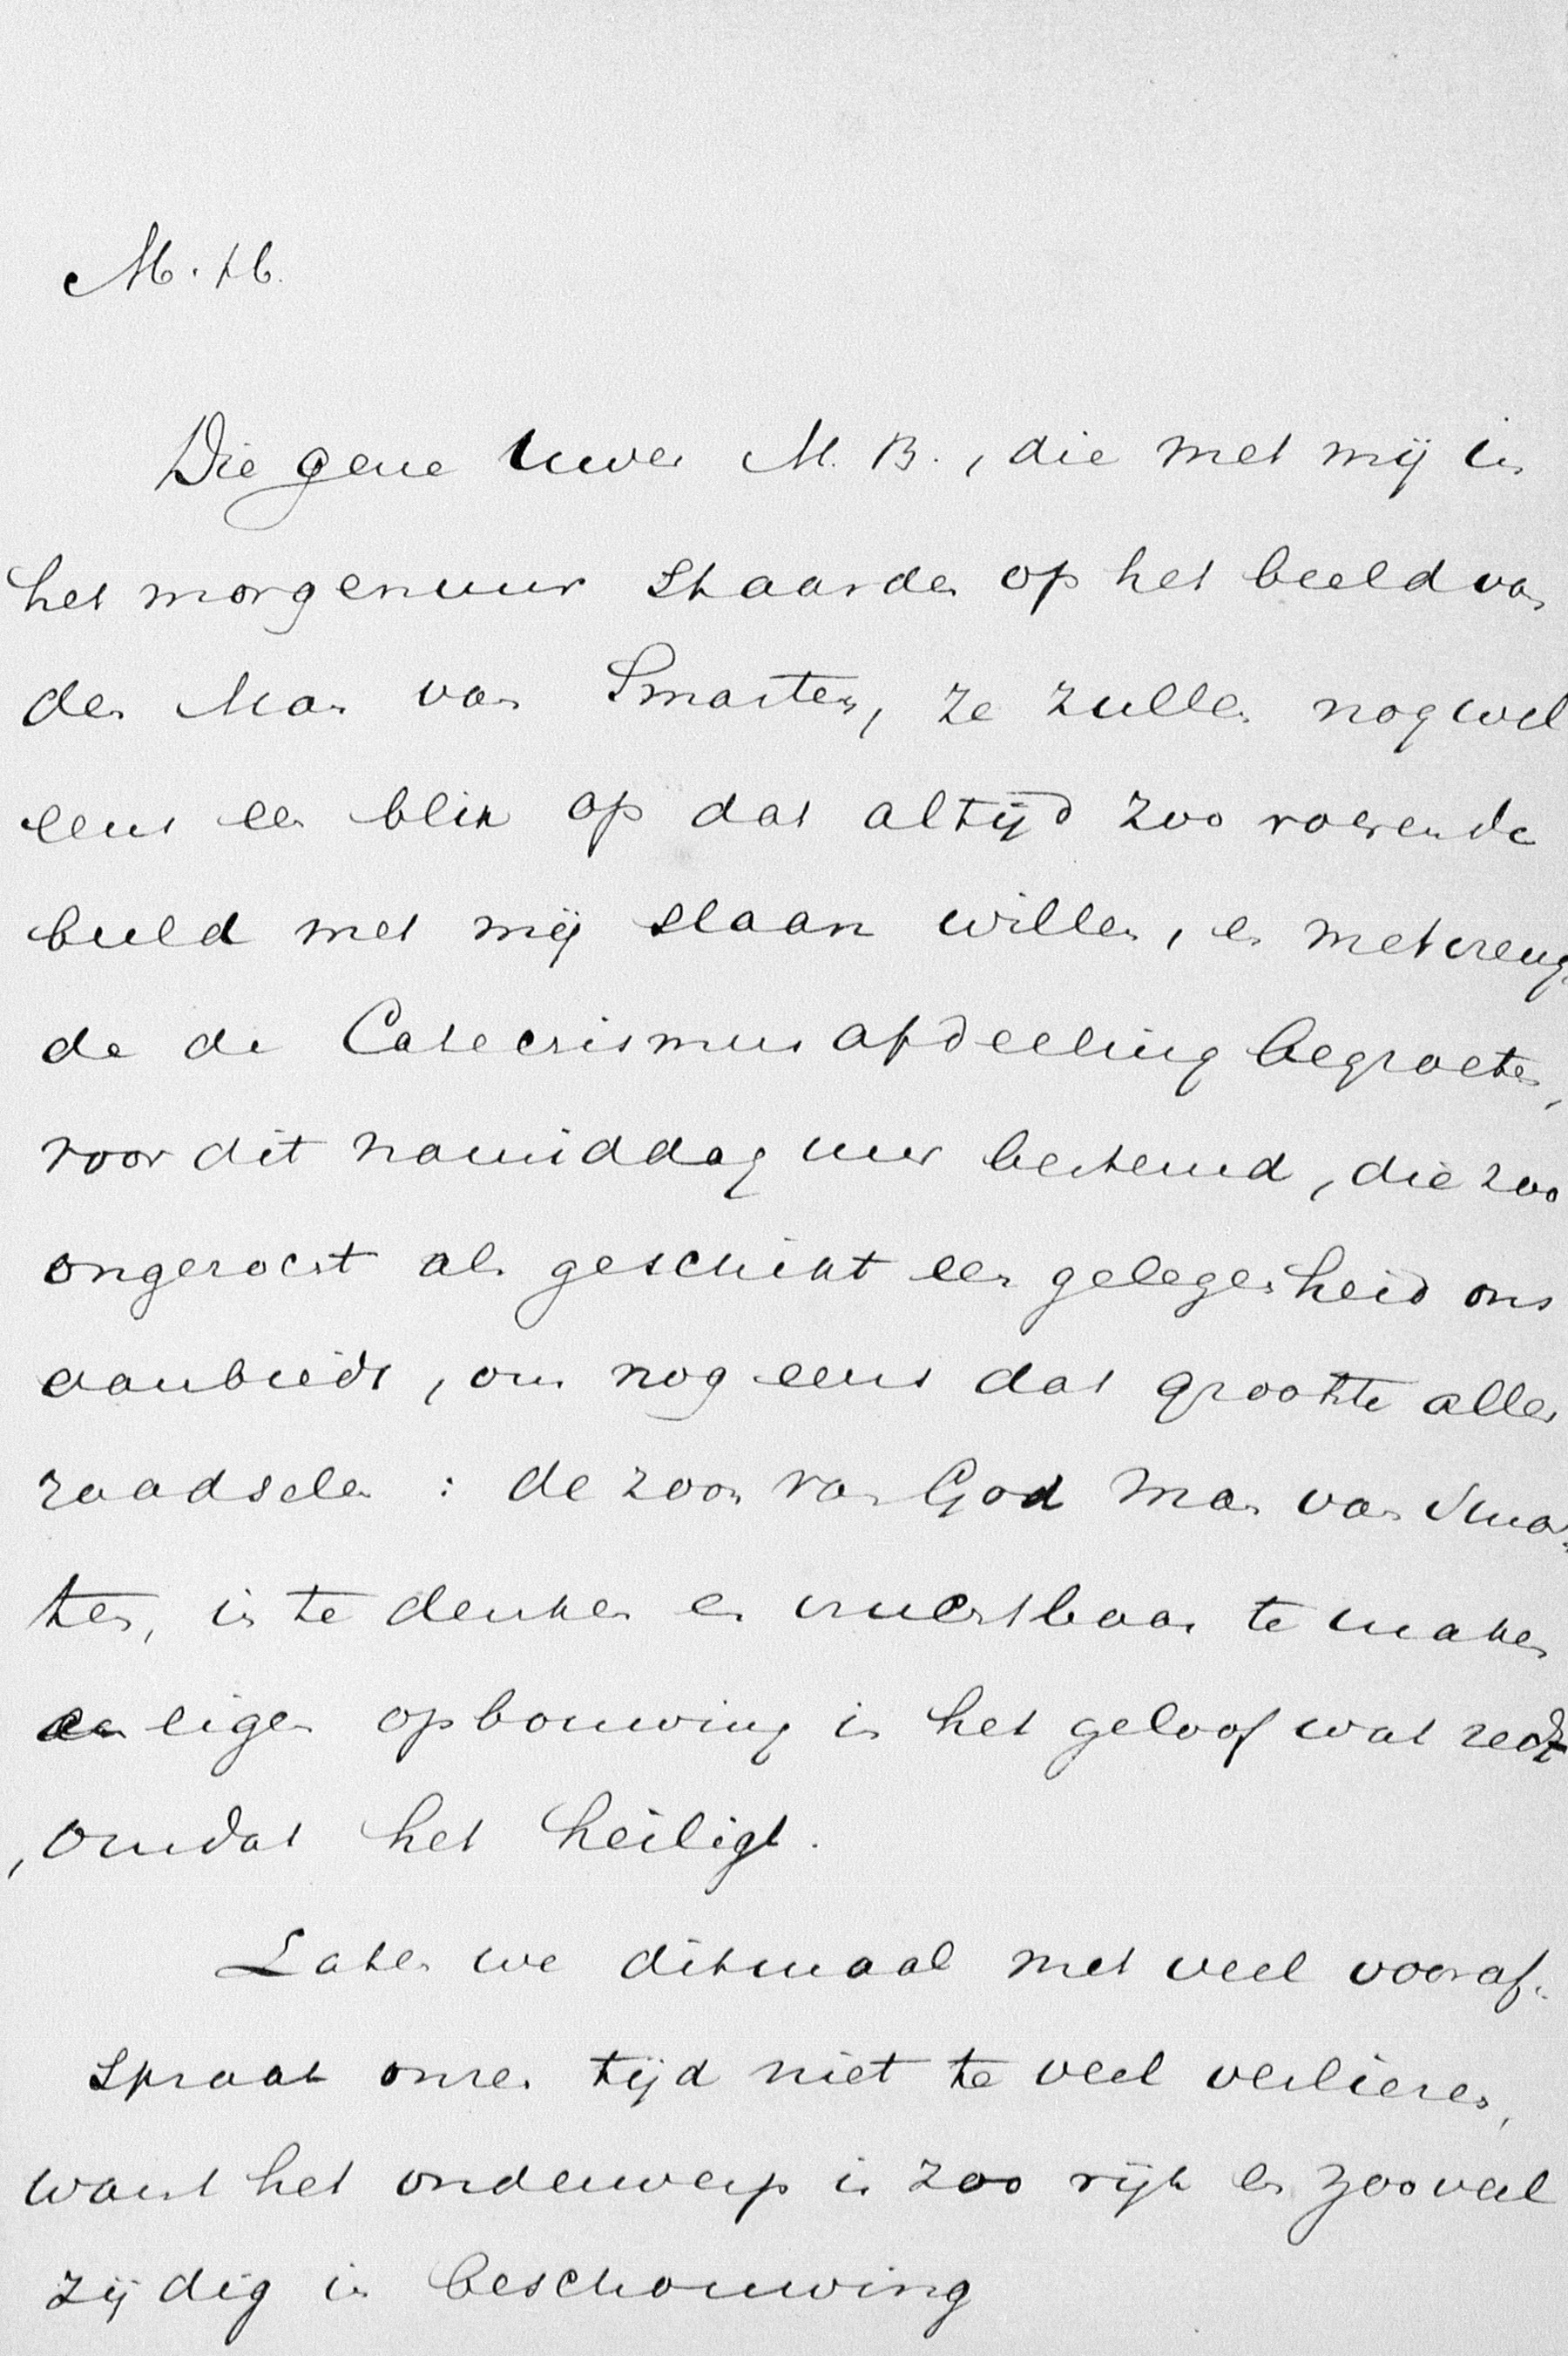 M. H.
Die gene uwer M. B., die met mij in
het morgenuur staarden op het beeld van
den Man van Smarten, ze zullen nog wel
eens een blik op dat altijd zoo roerende
beeld met mij slaan willen, en met vreug
de de Catechismus afdeeling begroeten,
voor dit namiddag uur bestemd, die zoo
ongezocht als geschikt een gelegenheid ons
aanbiedt, om nog eens dat grootste aller
raadselen : de zoon van God Man van Smar
ten, in te denken en vruchtbaar te maken
aan eigen opbouwing in het geloof wat redt
, omdat het heiligt.
Laten we ditmaal met veel vooraf-
spraak onzen tijd niet te veel verliezen,
want het onderwerp is zoo rijk en zooveel
zijdig in beschouwing